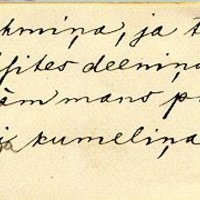 kmiņa, ja t
sites deeniņa
ām mans p
kumeliņa